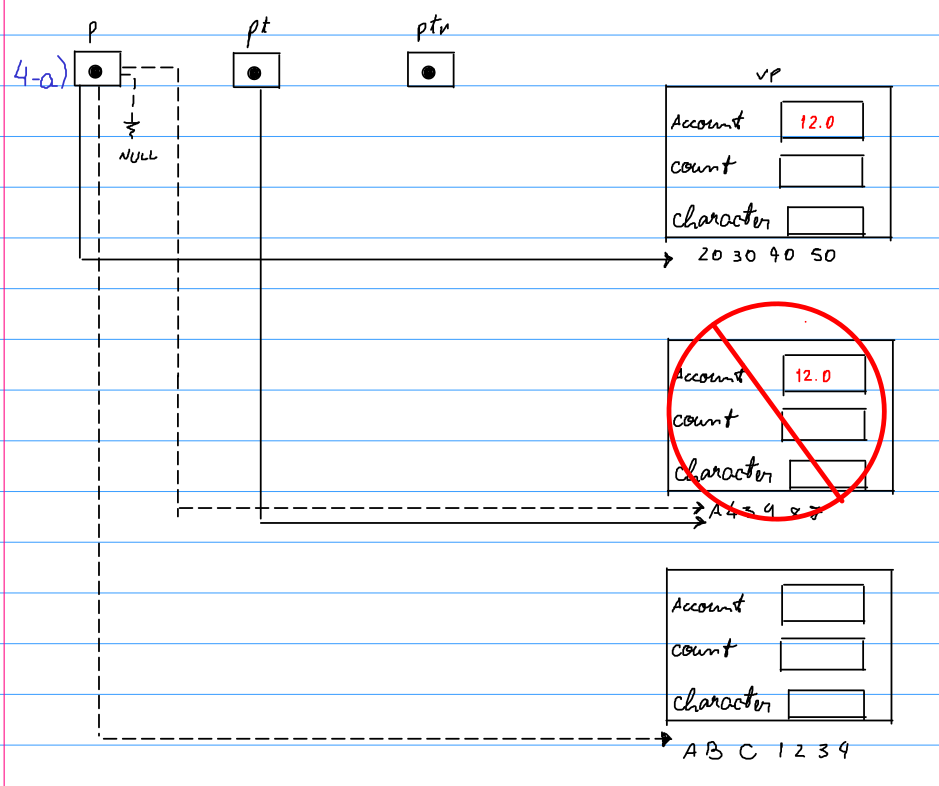 p pt ptr
4-a)
NULL
vp
Account 12.0
count
character
20 30 40 50
Account 12.0
count
character
A 4 3 9 8 7
Account
count
character
A B C 1 2 3 4